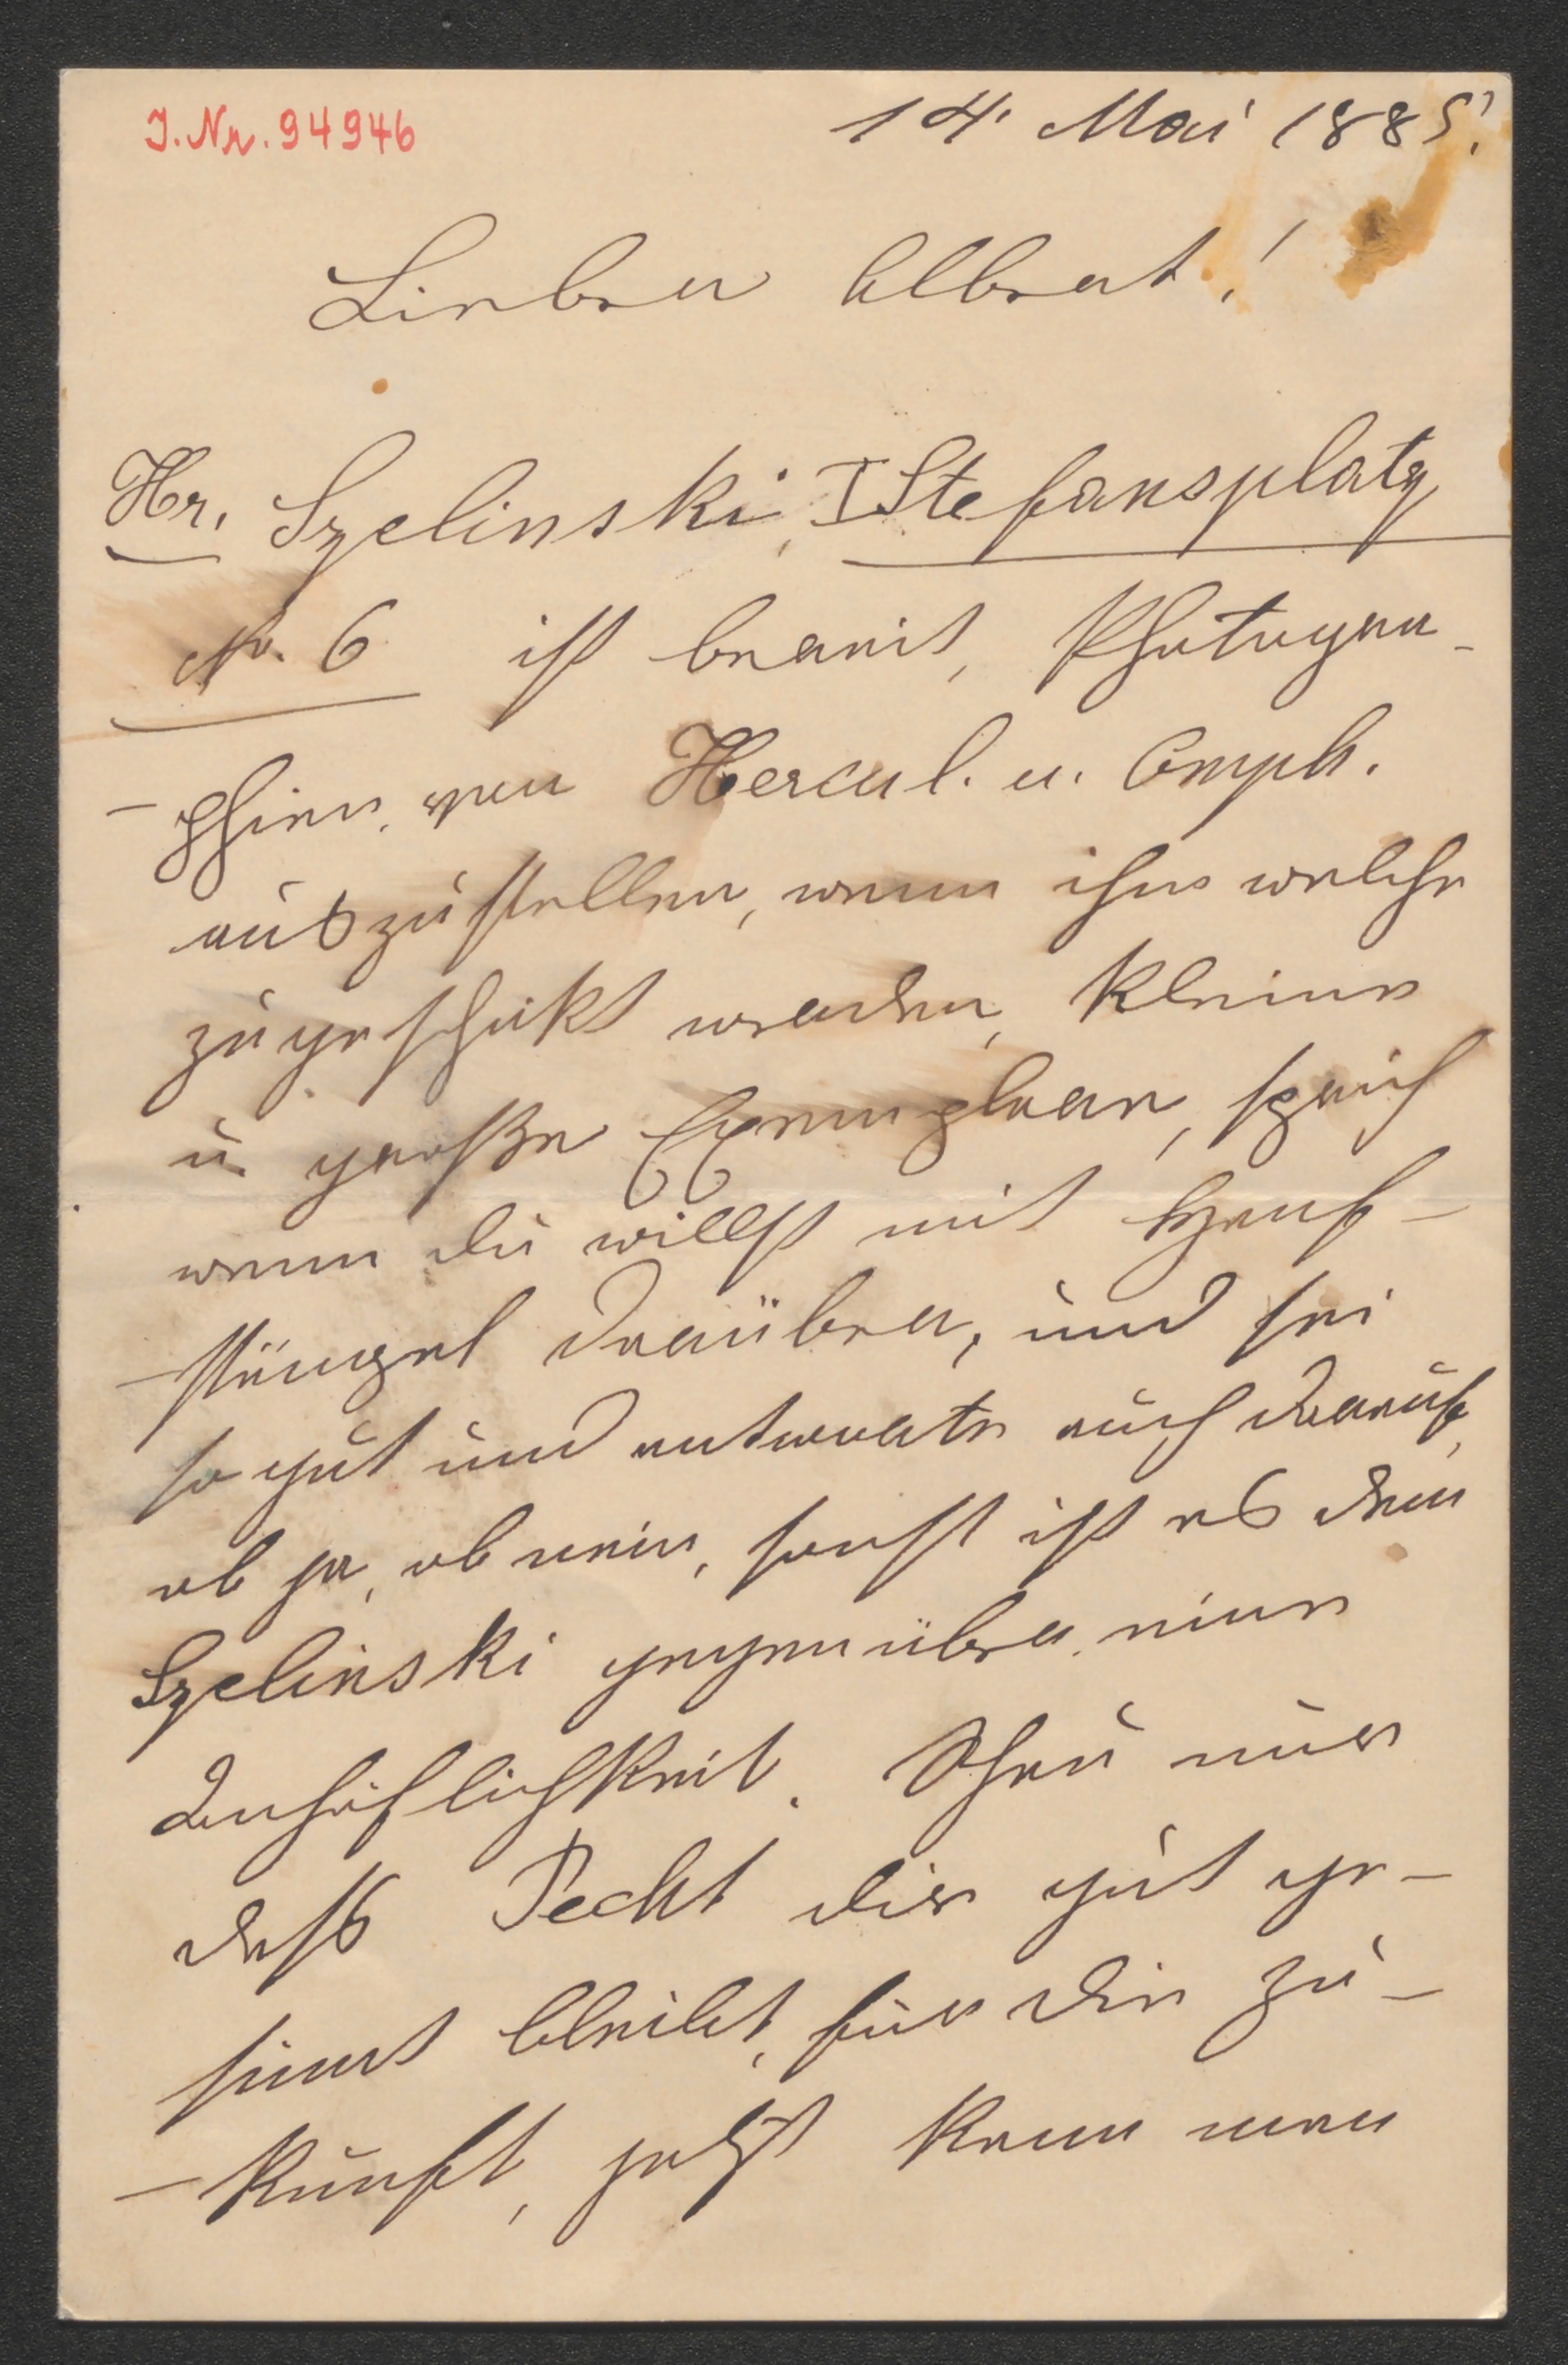 J. Nr. 94946
14. Mai 1885.
Lieber Albert!
Hr. Szelinski, I Stefansplatz
No. 6 ist bereit, Photogra-
-phien von Hercul. u. Omph.
auszustellen, wenn ihm welche
zugeschikt werden, kleine
u. große Exemplare, sprich
wenn du willst mit Hanf-
-stängel darüber, und sei
so gut und antworte auch darauf,
ob ja, ob nein, sonst ist es dem
Szelinski gegenüber eine
Unhöflichkeit. Schau nur
daß Pecht dir gut ge-
sinnt bleibt, für die Zu-
-kunft, jetzt kann man